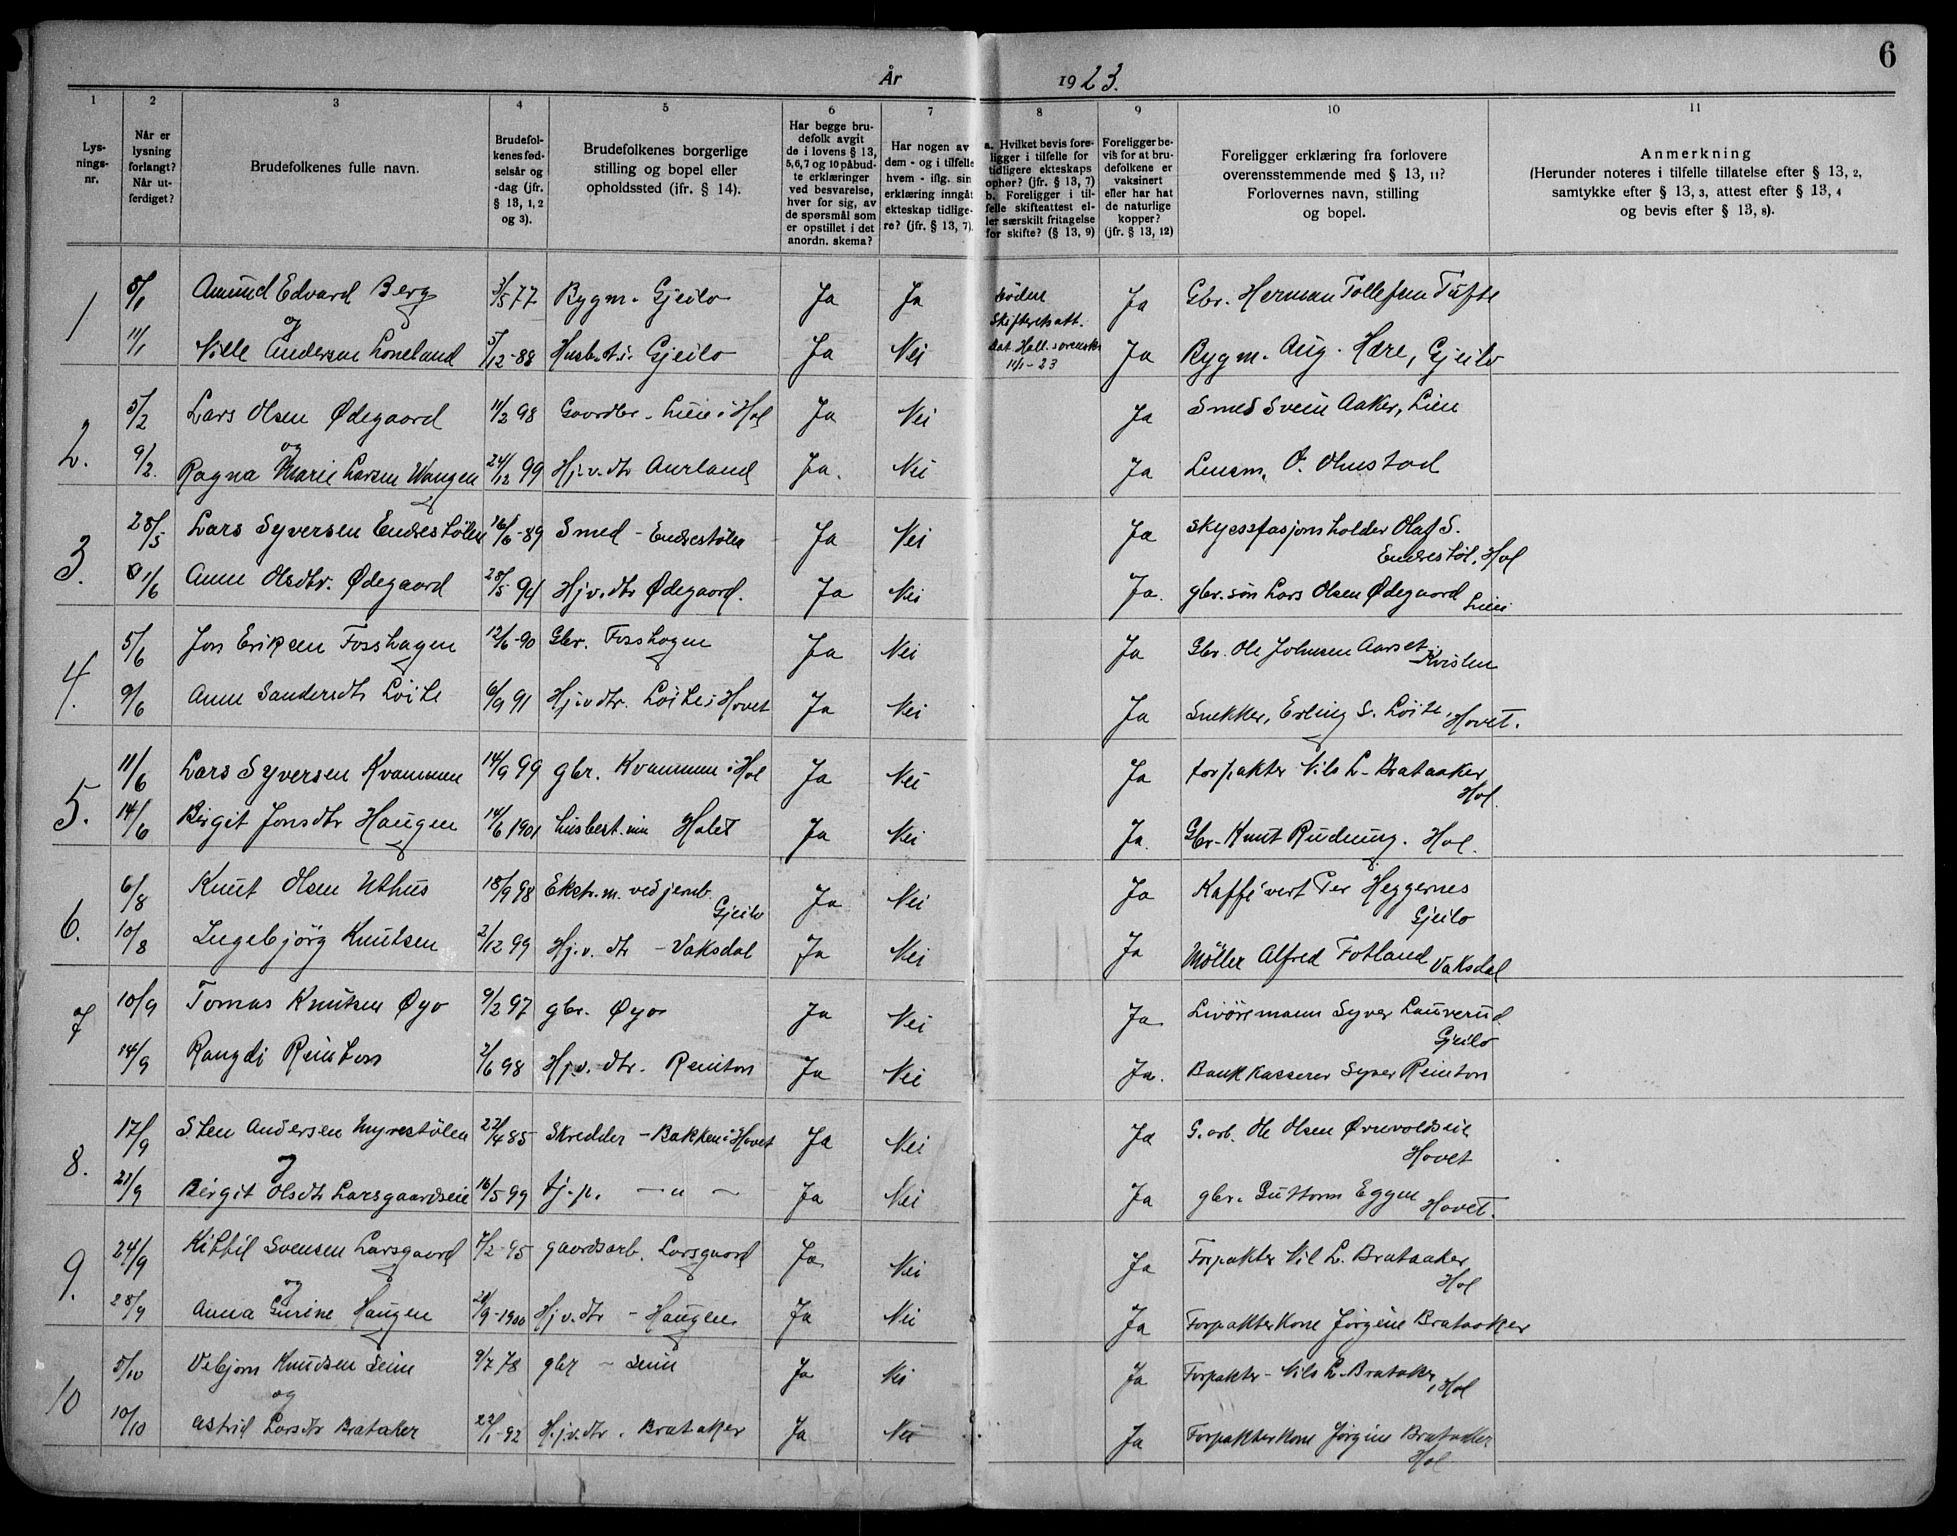 6
År 1923.
1 2 3 4 5 6 7 8 9 10 11
Lys-
nings-
nr.
Når er
lysning
forlangt?
Når ut-
ferdiget?
Brudefolkenes fulle navn.
Brudefol-
kenes fød-
selsår og
-dag (jfr.
§ 13, 1, 2
og 3).
Brudefolkenes borgerlige
stilling og bopel eller
opholdssted (jfr. § 14).
Har begge bru-
defolk avgit
de i lovens § 13,
5, 6, 7 og 10 påbud-
te erklæringer
ved besvarelse,
hver for sig, av
de spørsmål som
er opstillet i det
anordn. skema?
Har nogen av
dem - og i tilfelle
hvem - iflg. sin
erklæring inngåt
ekteskap tidlige-
re? (jfr. § 13, 7).
a. Hvilket bevis fore-
ligger i tilfelle for
tidligere ekteskaps
ophør? (jfr. § 13, 7)
b. Foreligger i til-
felle skifteattest el-
ler særskilt fritagelse
for skifte? (§ 13, 9)
Foreligger be-
vis for at bru-
defolkene er
vaksinert
eller har hat
de naturlige
kopper?
(jfr. § 13, 12)
Foreligger erklæring fra forlovere
overensstemmende med § 13, 11?
Forlovernes navn, stilling
og bopel.
Anmerkning
(Herunder noteres i tilfelle tillatelse efter § 13, 2,
samtykke efter § 13, 3, attest efter § 13, 4
og bevis efter § 13, 8).
1 8/1 Amund Edvard Berg 3/5 77 Bygm. Gjeilo Ja Ja Ja Gbr. Herman Tollefsen Tufte
og
Skifteratt.
11/1 Nille Andersen Loneland 5/12-88 Husb. Gjeilo Ja Nei Ja Bygm. Aug. Hære, Gjeilo
11/1-23
2. 5/2 Lars Olsen Ødegaard 11/2 98 Gaardbr. Lien i Hol Ja Nei Ja Smed Svein Aaker, Lien
og
9/2. Ragna Marie Larsen Wangen 24/12 99 Hj.v. dtr Aurland Ja. Nei Ja Lensm. O. Olmstad
3. 28/5 Lars Syversen Endrestølen 16/6-89 Smed - Endrestølen Ja Nei Ja Skysstasjonsholder Olaf S.
Endrestøl, Hol
1/6 Anne Olsdtr. Ødegaard 28/5 94 Hj.v. dtr Ødegaard. Ja Nei Ja. gbr. søn Lars Olsen Ødegaard Lien
4. 5/6 Jon Eriksen Fosshagen 12/6-90 Gbr. Fosshagen Ja Nei Ja Gbr. Ole Johnsen Aarset
Kvislen
9/6 Anne Sandersdtr Löite 6/9 91 Hj.v. dtr. Löite i Hovet Ja Nei Ja Snekker, Erling S. Löite, Hovet.
5. 11/6 Lars Syversen Kvammen 14/9 99 gbr. Kvammen i Hol Ja Nei Ja forpakter Nils L. Brataaker
Hol.
14/6 Birgit Jonsdtr Haugen 14/6 1901 Holet Ja Nei Ja. Gbr. Knut Rudning. Hol.
6. 6/8 Knut Olsen Uthus 18/9 98 Ekstr. m. ved jernb. Ja Nei Ja Kaffévert Per Heggernes
Gjeilo Gjeilo
10/8 Ingebjörg Knutsen 2/12 99 Hj.v. dtr - Vaksdal Ja Nei Ja Møller Alfred Fotland Vaksdal
7 10/9 Tomas Knutsen Øyo 9/2 97 gbr. Øyo Ja Nei Ja Syver Lauverud
Gjeilo
14/9 Rangdi Reinton 2/6 98 Hj.v. dtr. Reinton Ja Nei Ja. Bankkasserer Syver Reinton
8. 17/9 Sten Andersen Myrestølen 22/4 85 Skredder - Bakken i Hovet Ja Nei Ja G.arb. Ole Olsen
Hovet
og
21/9 Birgit Olsdtr Larsgaardseie 16/5 99 tj.p. - " - Ja Nei Ja gbr. Guttorm Eggen Hovet.
9. 24/9 Kittil Svensen Larsgaard 7/2-95 gaardsarb. Larsgaard Ja Nei Ja Forpakter Nil L. Brataaker
Hol
og
28/9 Anna Gurine Haugen 21/9-1900 Hj.v. dtr - Haugen. Ja Nei Ja Forpakterkone Jørgine Brataaker
10 5/10 Vebjørn Knudsen Seim 9/7 78 gbr - Seim Ja Nei Ja Forpakter - Nils L. Brataker, Hol
og
10/10 Astrid Larsdtr Brataker 22/1-92 Hj.v. dtr. Brataker Ja Nei Ja Forpakterkone Jørgine Brataaker
Hol